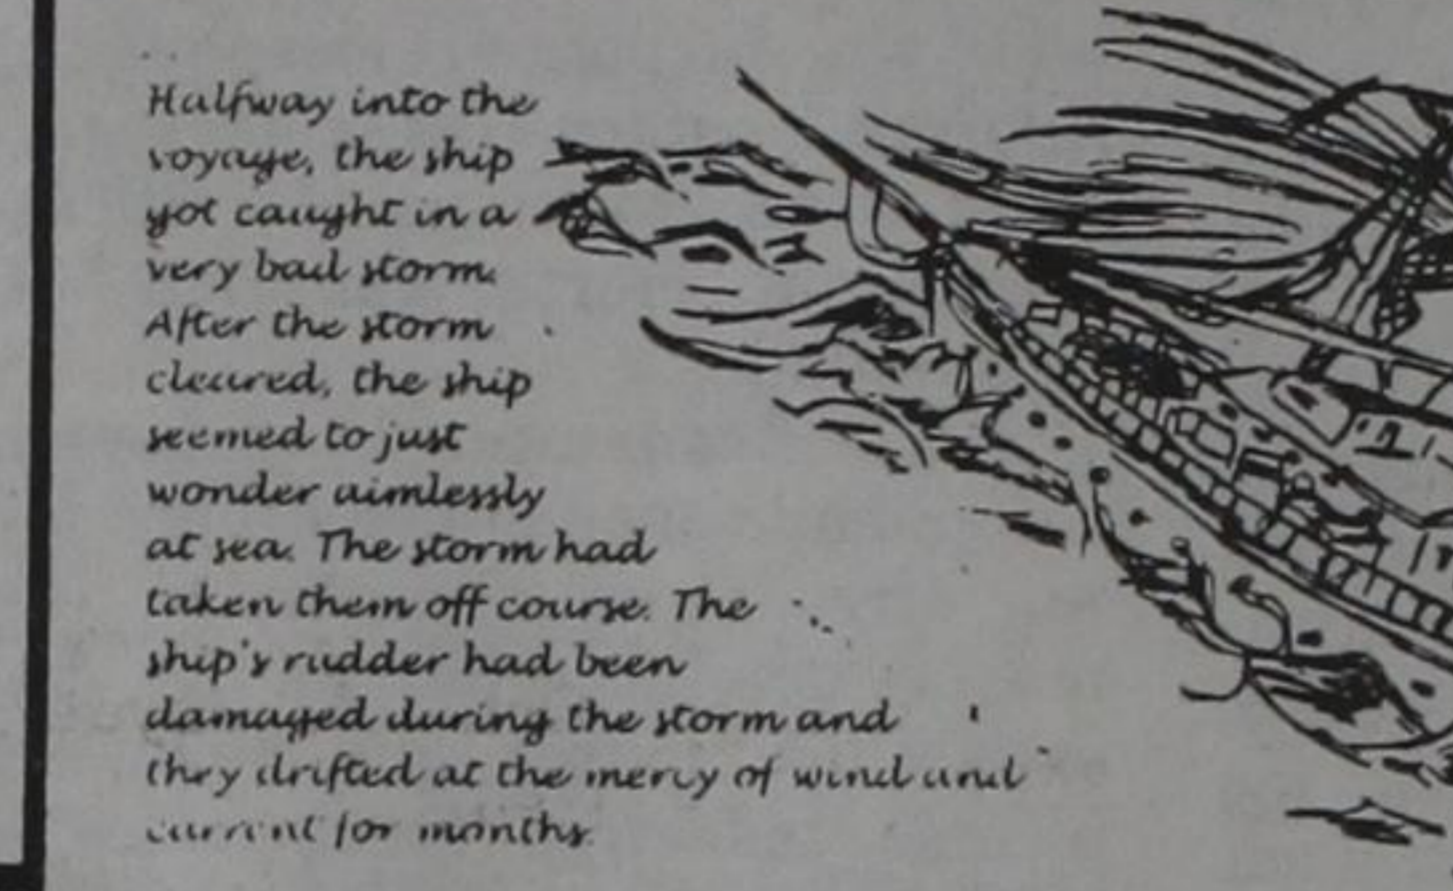 Halfway into the
voyage, the ship
got caught in a
very bad storm.
After the storm
cleared, the ship
seemed to just
wonder aimlessly
at sea. The storm had
taken them off course. The
ship's rudder had been
damaged during the storm and
they drifted at the mercy of wind and
current for months.